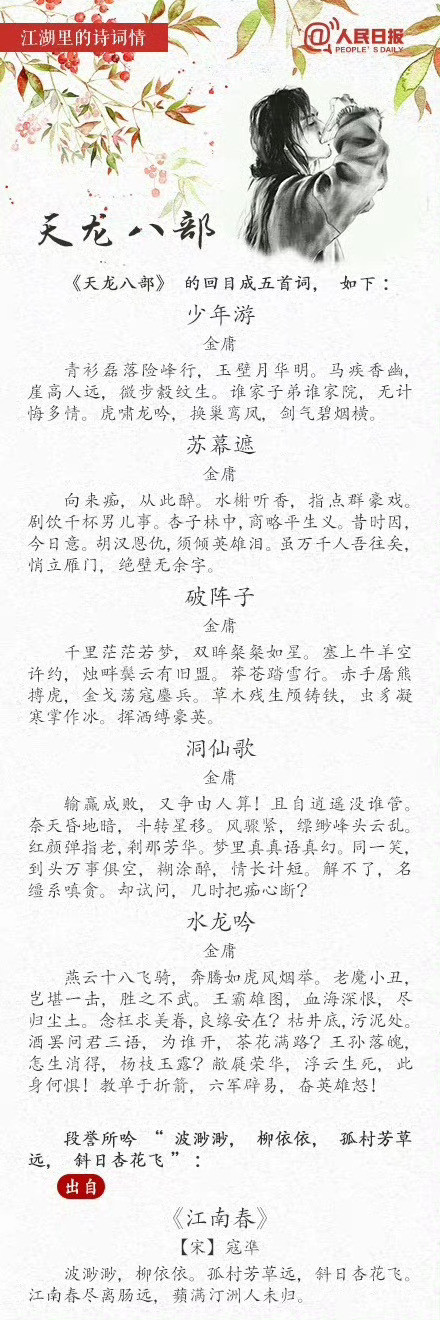 江湖里的诗词情
@人民日报
PEOPLE'S DAILY
天龙八部
《天龙八部》 的回目成五首词， 如下：
少年游
金庸
青衫磊落险峰行，玉壁月华明。马疾香幽，
崖高人远，微步縠纹生。谁家子弟谁家院，无计
悔多情。虎啸龙吟，换巢鸾凤，剑气碧烟横。
苏幕遮
金庸
向来痴，从此醉。水榭听香，指点群豪戏。
剧饮千杯男儿事。杏子林中，商略平生义。昔时因，
今日意。胡汉恩仇，须倾英雄泪。虽万千人吾往矣，
悄立雁门，绝壁无余字。
破阵子
金庸
千里茫茫若梦，双眸粲粲如星。塞上牛羊空
许约，烛畔鬓云有旧盟。莽苍踏雪行。赤手屠熊
搏虎，金戈荡寇鏖兵。草木残生颅铸铁，虫豸凝
寒掌作冰。挥洒缚豪英。
洞仙歌
金庸
输赢成败，又争由人算！且自逍遥没谁管。
奈天昏地暗，斗转星移。风骤紧，缥缈峰头云乱。
红颜弹指老，刹那芳华。梦里真真语真幻。同一笑，
到头万事俱空，糊涂醉，情长计短。解不了，名
缰系嗔贪。却试问，几时把痴心断？
水龙吟
金庸
燕云十八飞骑，奔腾如虎风烟举。老魔小丑，
岂堪一击，胜之不武。王霸雄图，血海深恨，尽
归尘土。念枉求美眷，良缘安在？枯井底，污泥处。
酒罢问君三语，为谁开，茶花满路？王孙落魄，
怎生消得，杨枝玉露？敝屣荣华，浮云生死，此
身何惧！教单于折箭，六军辟易，奋英雄怒！
段誉所吟 “ 波渺渺， 柳依依， 孤村芳草
远， 斜日杏花飞 ” ：
出自
《江南春》
【宋】寇凖
波渺渺，柳依依。孤村芳草远，斜日杏花飞。
江南春尽离肠远，蘋满汀洲人未归。